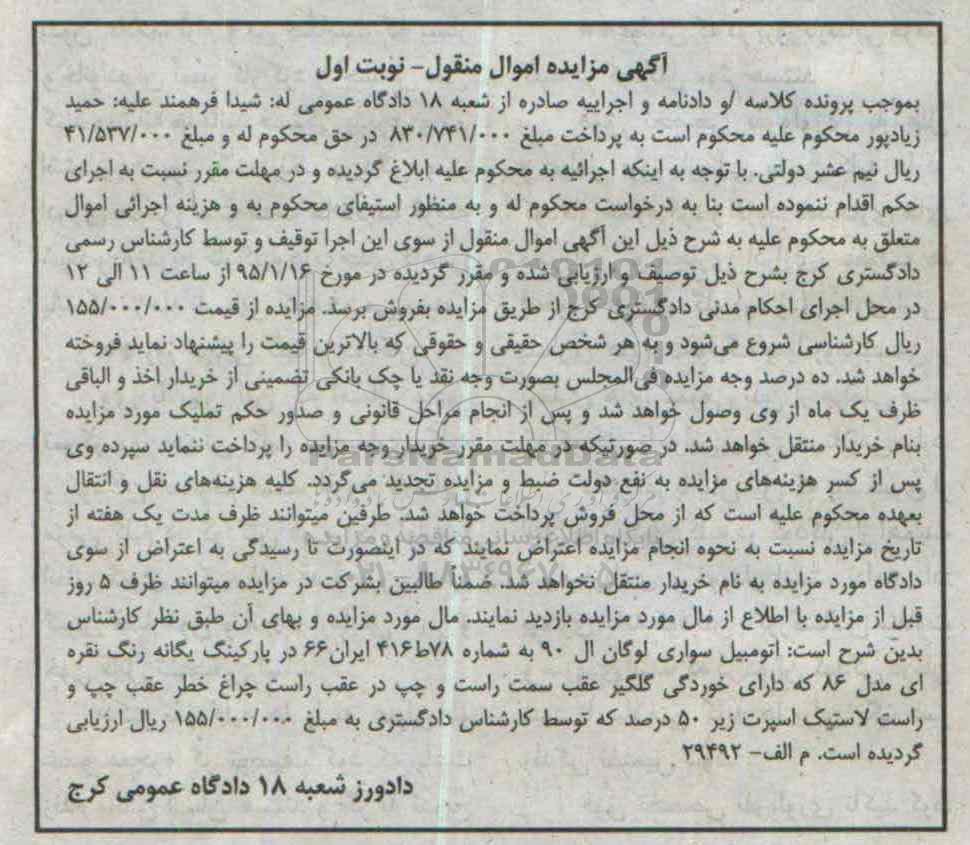 آگهی مزایده اموال منقول- نوبت اول
بموجب پرونده کلاسه /و دادنامه و اجراییه صادره از شعبه ۱۸ دادگاه عمومی له: شیدا فرهمند علیه: حمید
زیادپور محکوم علیه محکوم است به پرداخت مبلغ ۸۳۰/۷۴۱/۰۰۰ در حق محکوم له و مبلغ ۴۱/۵۳۷/۰۰۰
ریال نیم عشر دولتی. با توجه به اینکه اجرائیه به محکوم علیه ابلاغ گردیده و در مهلت مقرر نسبت به اجرای
حکم اقدام ننموده است بنا به درخواست محکوم له و به منظور استیفای محکوم به و هزینه اجرائی اموال
متعلق به محکوم علیه به شرح ذیل این آگهی اموال منقول از سوی این اجرا توقیف و توسط کارشناس رسمی
دادگستری کرج بشرح ذیل توصیف و ارزیابی شده و مقرر گردیده در مورخ ۹۵/۱/۱۶ از ساعت ۱۱ الی ۱۲
در محل اجرای احکام مدنی دادگستری کرج از طریق مزایده بفروش برسد. مزایده از قیمت ۱۵۵/۰۰۰/۰۰۰
ریال کارشناسی شروع می‌شود و به هر شخص حقیقی و حقوقی که بالاترین قیمت را پیشنهاد نماید فروخته
خواهد شد. ده درصد وجه مزایده فی‌المجلس بصورت وجه نقد یا چک بانکی تضمینی از خریدار اخذ و الباقی
ظرف یک ماه از وی وصول خواهد شد و پس از انجام مراحل قانونی و صدور حکم تملیک مورد مزایده
بنام خریدار منتقل خواهد شد. در صورتیکه در مهلت مقرر خریدار وجه مزایده را پرداخت ننماید سپرده وی
پس از کسر هزینه‌های مزایده به نفع دولت ضبط و مزایده تجدید می‌گردد. کلیه هزینه‌های نقل و انتقال
بعهده محکوم علیه است که از محل فروش پرداخت خواهد شد. طرفین میتوانند ظرف مدت یک هفته از
تاریخ مزایده نسبت به نحوه انجام مزایده اعتراض نمایند که در اینصورت تا رسیدگی به اعتراض از سوی
دادگاه مورد مزایده به نام خریدار منتقل نخواهد شد. ضمناً طالبین بشرکت در مزایده میتوانند ظرف ۵ روز
قبل از مزایده با اطلاع از مال مورد مزایده بازدید نمایند. مال مورد مزایده و بهای آن طبق نظر کارشناس
بدین شرح است: اتومبیل سواری لوگان ال ۹۰ به شماره ۷۸ط۴۱۶ ایران۶۶ در پارکینگ یگانه رنگ نقره
ای مدل ۸۶ که دارای خوردگی گلگیر عقب سمت راست و چپ در عقب راست چراغ خطر عقب چپ و
راست لاستیک اسپرت زیر ۵۰ درصد که توسط کارشناس دادگستری به مبلغ ۱۵۵/۰۰۰/۰۰۰ ریال ارزیابی
گردیده است. م الف- ۲۹۴۹۲
دادورز شعبه ۱۸ دادگاه عمومی کرج
ParsNamadData